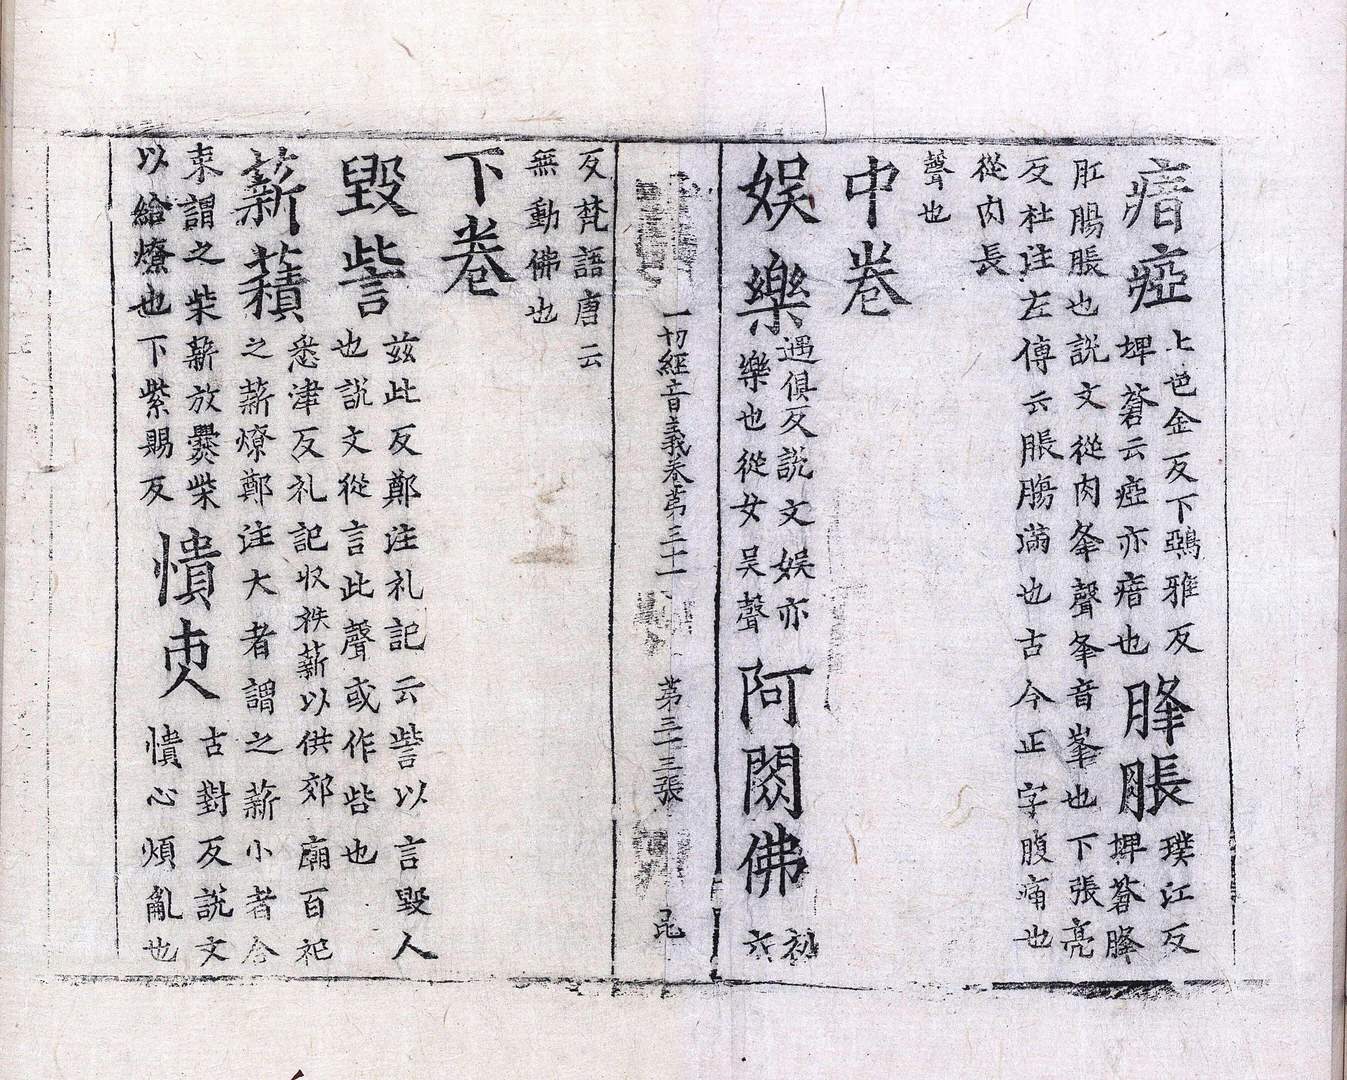 瘖瘂上邑金反下鵶雅反
埤蒼云瘂亦瘖也
胮脹璞江反
埤蒼胮
肛腸脹也說文從肉夆聲夆音峯也下張亮
反杜注左傳云脹腸滿也古今正字腹痛也
從肉長
聲也
中卷
娛樂遇俱反說文娛亦
樂也從女吳聲
阿閦佛初
六
一切經音義卷第三十一 第三十三張 昆
反梵語唐云
無動佛也
下卷
毀訾茲此反鄭注礼記云訾以言毀人
也說文從言此聲或作呰也
薪䕸悉津反礼記収秩薪以供郊廟百祀
之薪燎鄭注大者謂之薪小者合
束謂之柴薪放爨柴
以給燎也下紫賜反
憒㕛古對反說文
憒心煩亂也